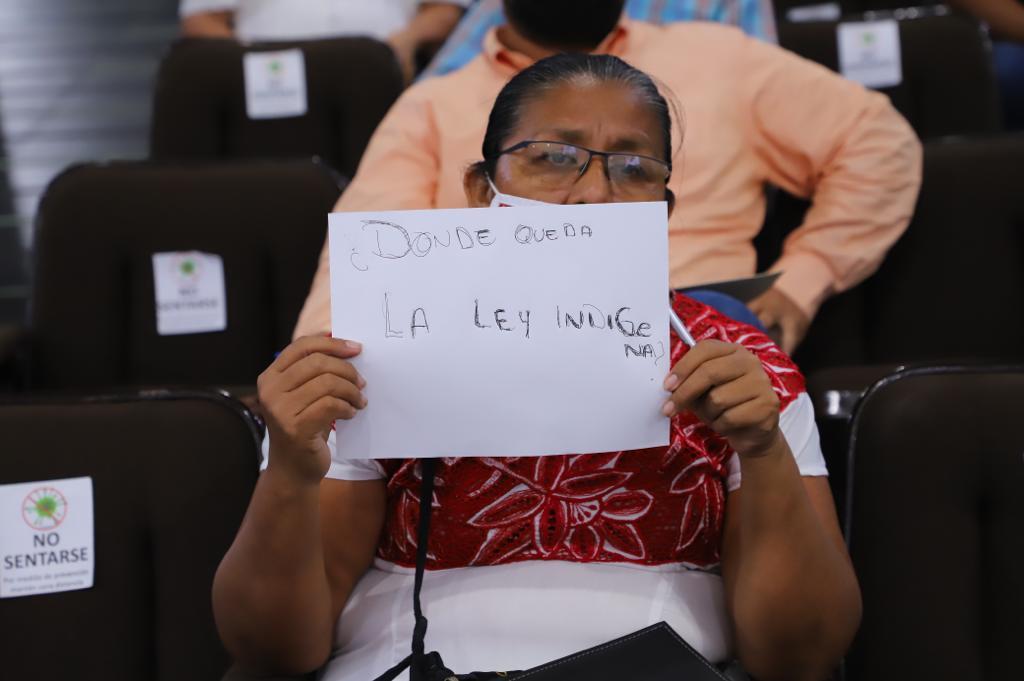 ¿DONDE QUEDA
LA LEY INDIGE
NA?
NO
SENTARSE
NO
SENTARSE
Por medida de prevención
mantén sana distancia